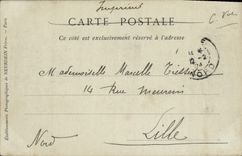 Imprimé
C. Vve
CARTE POSTALE
Ce côté est exclusivement réservé à l'adresse
Mademoiselle Marcelle
14 Rue
Lille
Nord
Établissements Photographiques de NEURDEIN Frères. — Paris